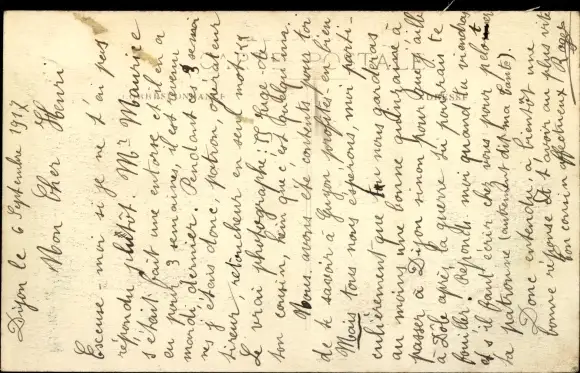 Dijon le 6 Septembre 1917
Mon Cher Henri
Excuse-moi si je ne t'ai pas
répondu plutôt. Mr Maurice
s'était fait une entorse et il en a
eu pour 3 semaines, il est revenu
mardi dernier. Pendant ces 3 semai
nes j'étais donc, patron, opérateur
tireur, retoucheur en seul mot:
Le vrai photographe! Juge-le
ton cousin, hein que c'est quelqu'un.
Nous avons été contents pour toi
de te savoir à profites-en bien
Mais tous nous espérions, moi parti-
culièrement que tu nous garderas
au moins une bonne quinzaine à
passer à Dijon sinon pour que j'aille
à Dôle après la guerre tu pourrais te
fouiller. Réponds moi quand tu viendras
et s'il faut écrir chez vous pour
ta patronne (autrement dit ma tante).
Donc entendu à bientôt une
bonne réponse et t'avoir au plus vite
ton cousin affectueux Roger
CORRESPONDANCE
ADRESSE